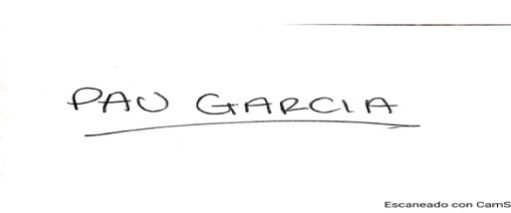 PAU GARCIA
Escaneado con CamS